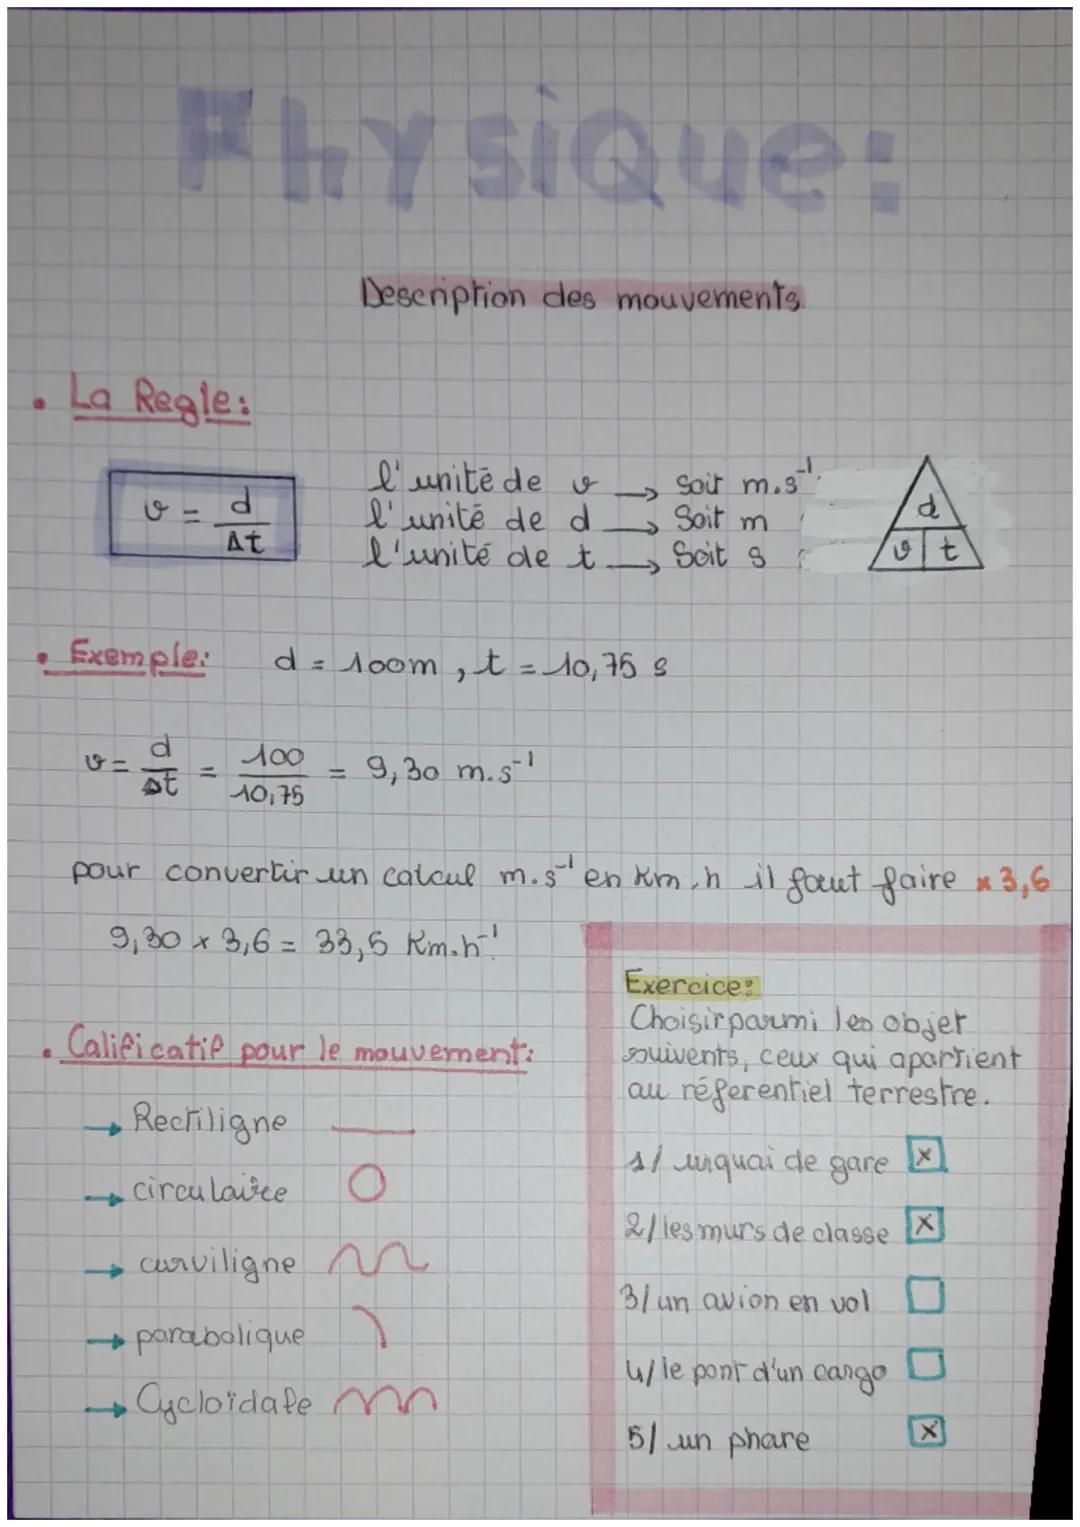 Physique:
Description des mouvements
• La Regle:
v = d/Δt
l'unité de v → soit m.s⁻¹
l'unité de d → Soit m
l'unité de t → Soit s
d
v t
• Exemple: d = 100m, t = 10,75 s
v = d/Δt = 100/10,75 = 9,30 m.s⁻¹
pour convertir un calcul m.s⁻¹ en Km.h il faut faire x 3,6
9,30 x 3,6 = 33,5 Km.h⁻¹.
• Calificatif pour le mouvement:
→ Rectiligne
→ circulaire
→ curviligne
→ parabolique
→ Cycloïdale
Exercice:
Choisir parmi les objet
suivents, ceux qui apartient
au réferentiel terrestre.
1/ un quai de gare x
2/ les murs de classe x
3/ un avion en vol
4/ le pont d'un cargo
5/ un phare x